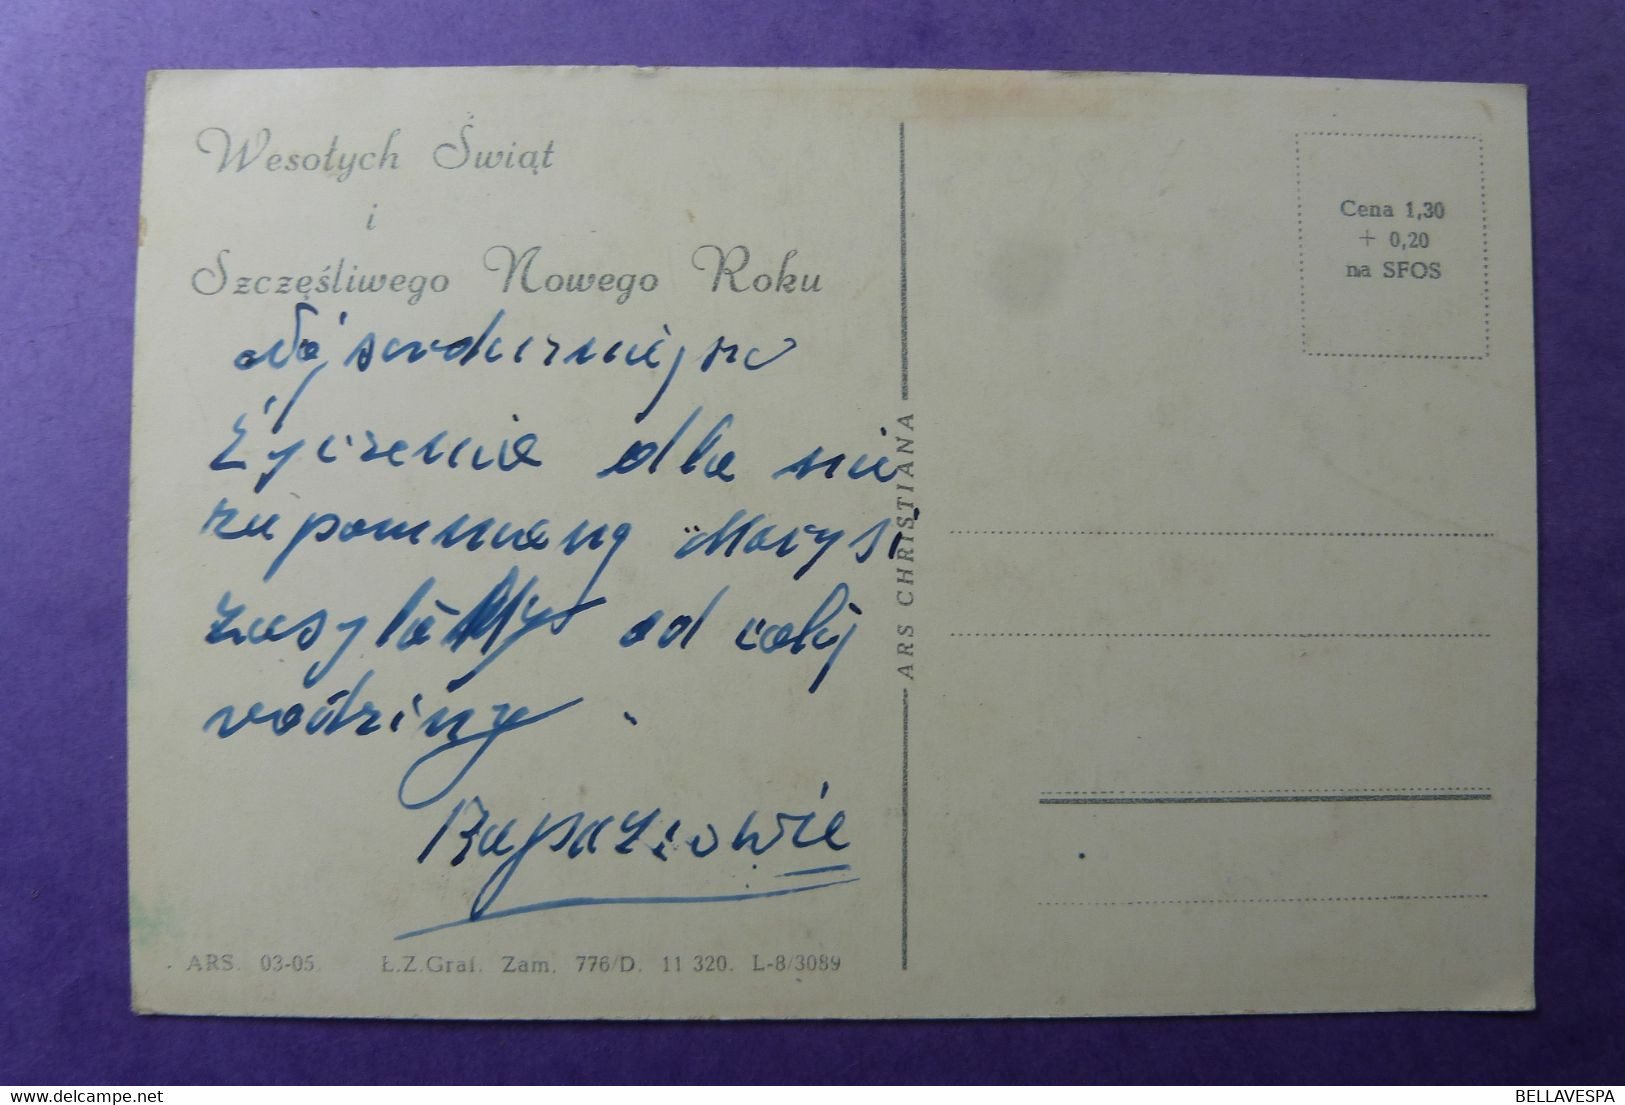 Wesołych Świąt
i
Szczęśliwego Nowego Roku
Życzenia dla nie
zapomniany Marysi
od całej
rodziny.
ARS CHRISTIANA
Cena 1,30
+ 0,20
na SFOS
ARS. 03-05. Ł.Z.Graf. Zam. 776/D. 11 320. L-8/3089
BELLAVESPA